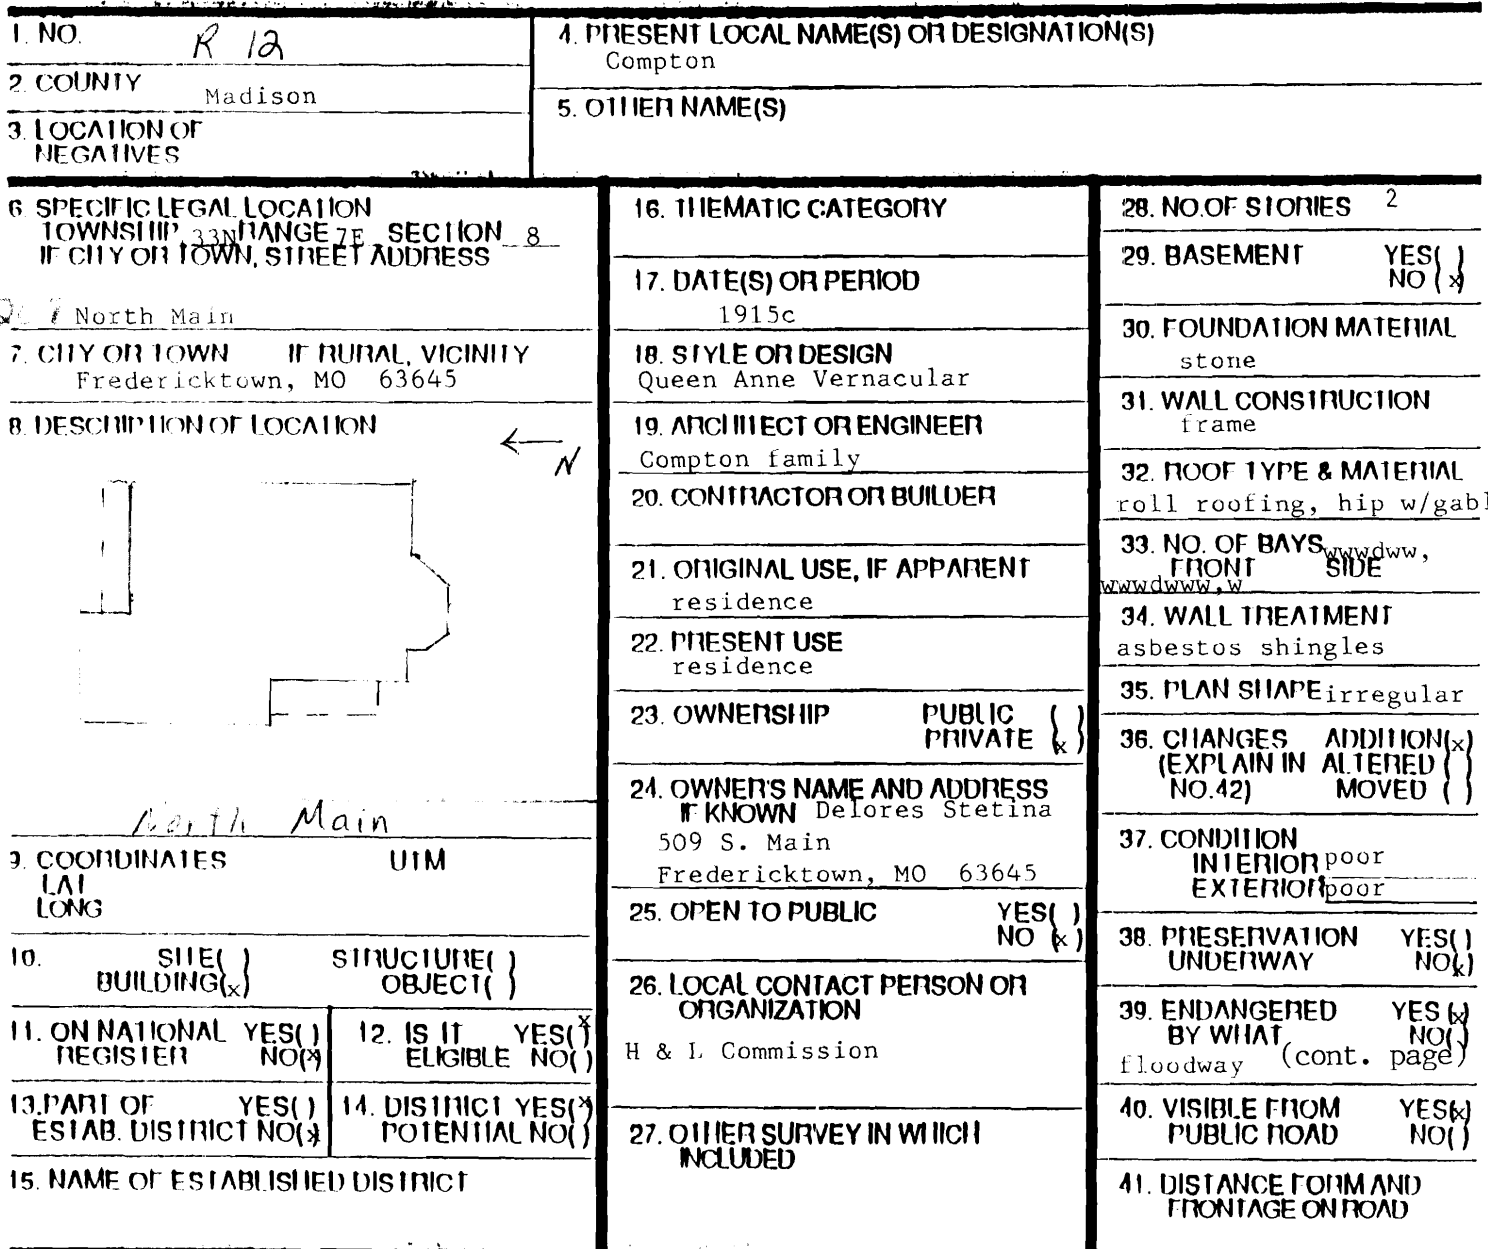 1. NO. R 12
2. COUNTY Madison
3. LOCATION OF
NEGATIVES
4. PRESENT LOCAL NAME(S) OR DESIGNATION(S)
Compton
5. OTHER NAME(S)
6. SPECIFIC LEGAL LOCATION
TOWNSHIP 33N RANGE 7E SECTION 8
IF CITY OR TOWN, STREET ADDRESS
North Main
7. CITY OR TOWN IF RURAL, VICINITY
Fredericktown, MO 63645
8. DESCRIPTION OF LOCATION
N
North Main
9. COORDINATES UTM
LAT
LONG
10. SITE( ) STRUCTURE( )
BUILDING(x) OBJECT( )
11. ON NATIONAL YES( )
REGISTER NO(x)
12. IS IT YES(x)
ELIGIBLE NO( )
13. PART OF YES( )
ESTAB. DISTRICT NO(x)
14. DISTRICT YES(x)
POTENTIAL NO( )
15. NAME OF ESTABLISHED DISTRICT
16. THEMATIC CATEGORY
17. DATE(S) OR PERIOD
1915c
18. STYLE OR DESIGN
Queen Anne Vernacular
19. ARCHITECT OR ENGINEER
Compton family
20. CONTRACTOR OR BUILDER
21. ORIGINAL USE, IF APPARENT
residence
22. PRESENT USE
residence
23. OWNERSHIP PUBLIC ( )
PRIVATE (x)
24. OWNER'S NAME AND ADDRESS
IF KNOWN Delores Stetina
509 S. Main
Fredericktown, MO 63645
25. OPEN TO PUBLIC YES( )
NO (x)
26. LOCAL CONTACT PERSON OR
ORGANIZATION
H & L Commission
27. OTHER SURVEY IN WHICH
INCLUDED
28. NO. OF STORIES 2
29. BASEMENT YES( )
NO (x)
30. FOUNDATION MATERIAL
stone
31. WALL CONSTRUCTION
frame
32. ROOF TYPE & MATERIAL
roll roofing, hip w/gabl
33. NO. OF BAYS wwwdww,
FRONT SIDE
wwwdwww,w
34. WALL TREATMENT
asbestos shingles
35. PLAN SHAPE irregular
36. CHANGES ADDITION(x)
(EXPLAIN IN ALTERED ( )
NO.42) MOVED ( )
37. CONDITION
INTERIOR poor
EXTERIOR poor
38. PRESERVATION YES( )
UNDERWAY NO(x)
39. ENDANGERED YES (x)
BY WHAT NO( )
floodway (cont. page)
40. VISIBLE FROM YES(x)
PUBLIC ROAD NO( )
41. DISTANCE FORM AND
FRONTAGE ON ROAD